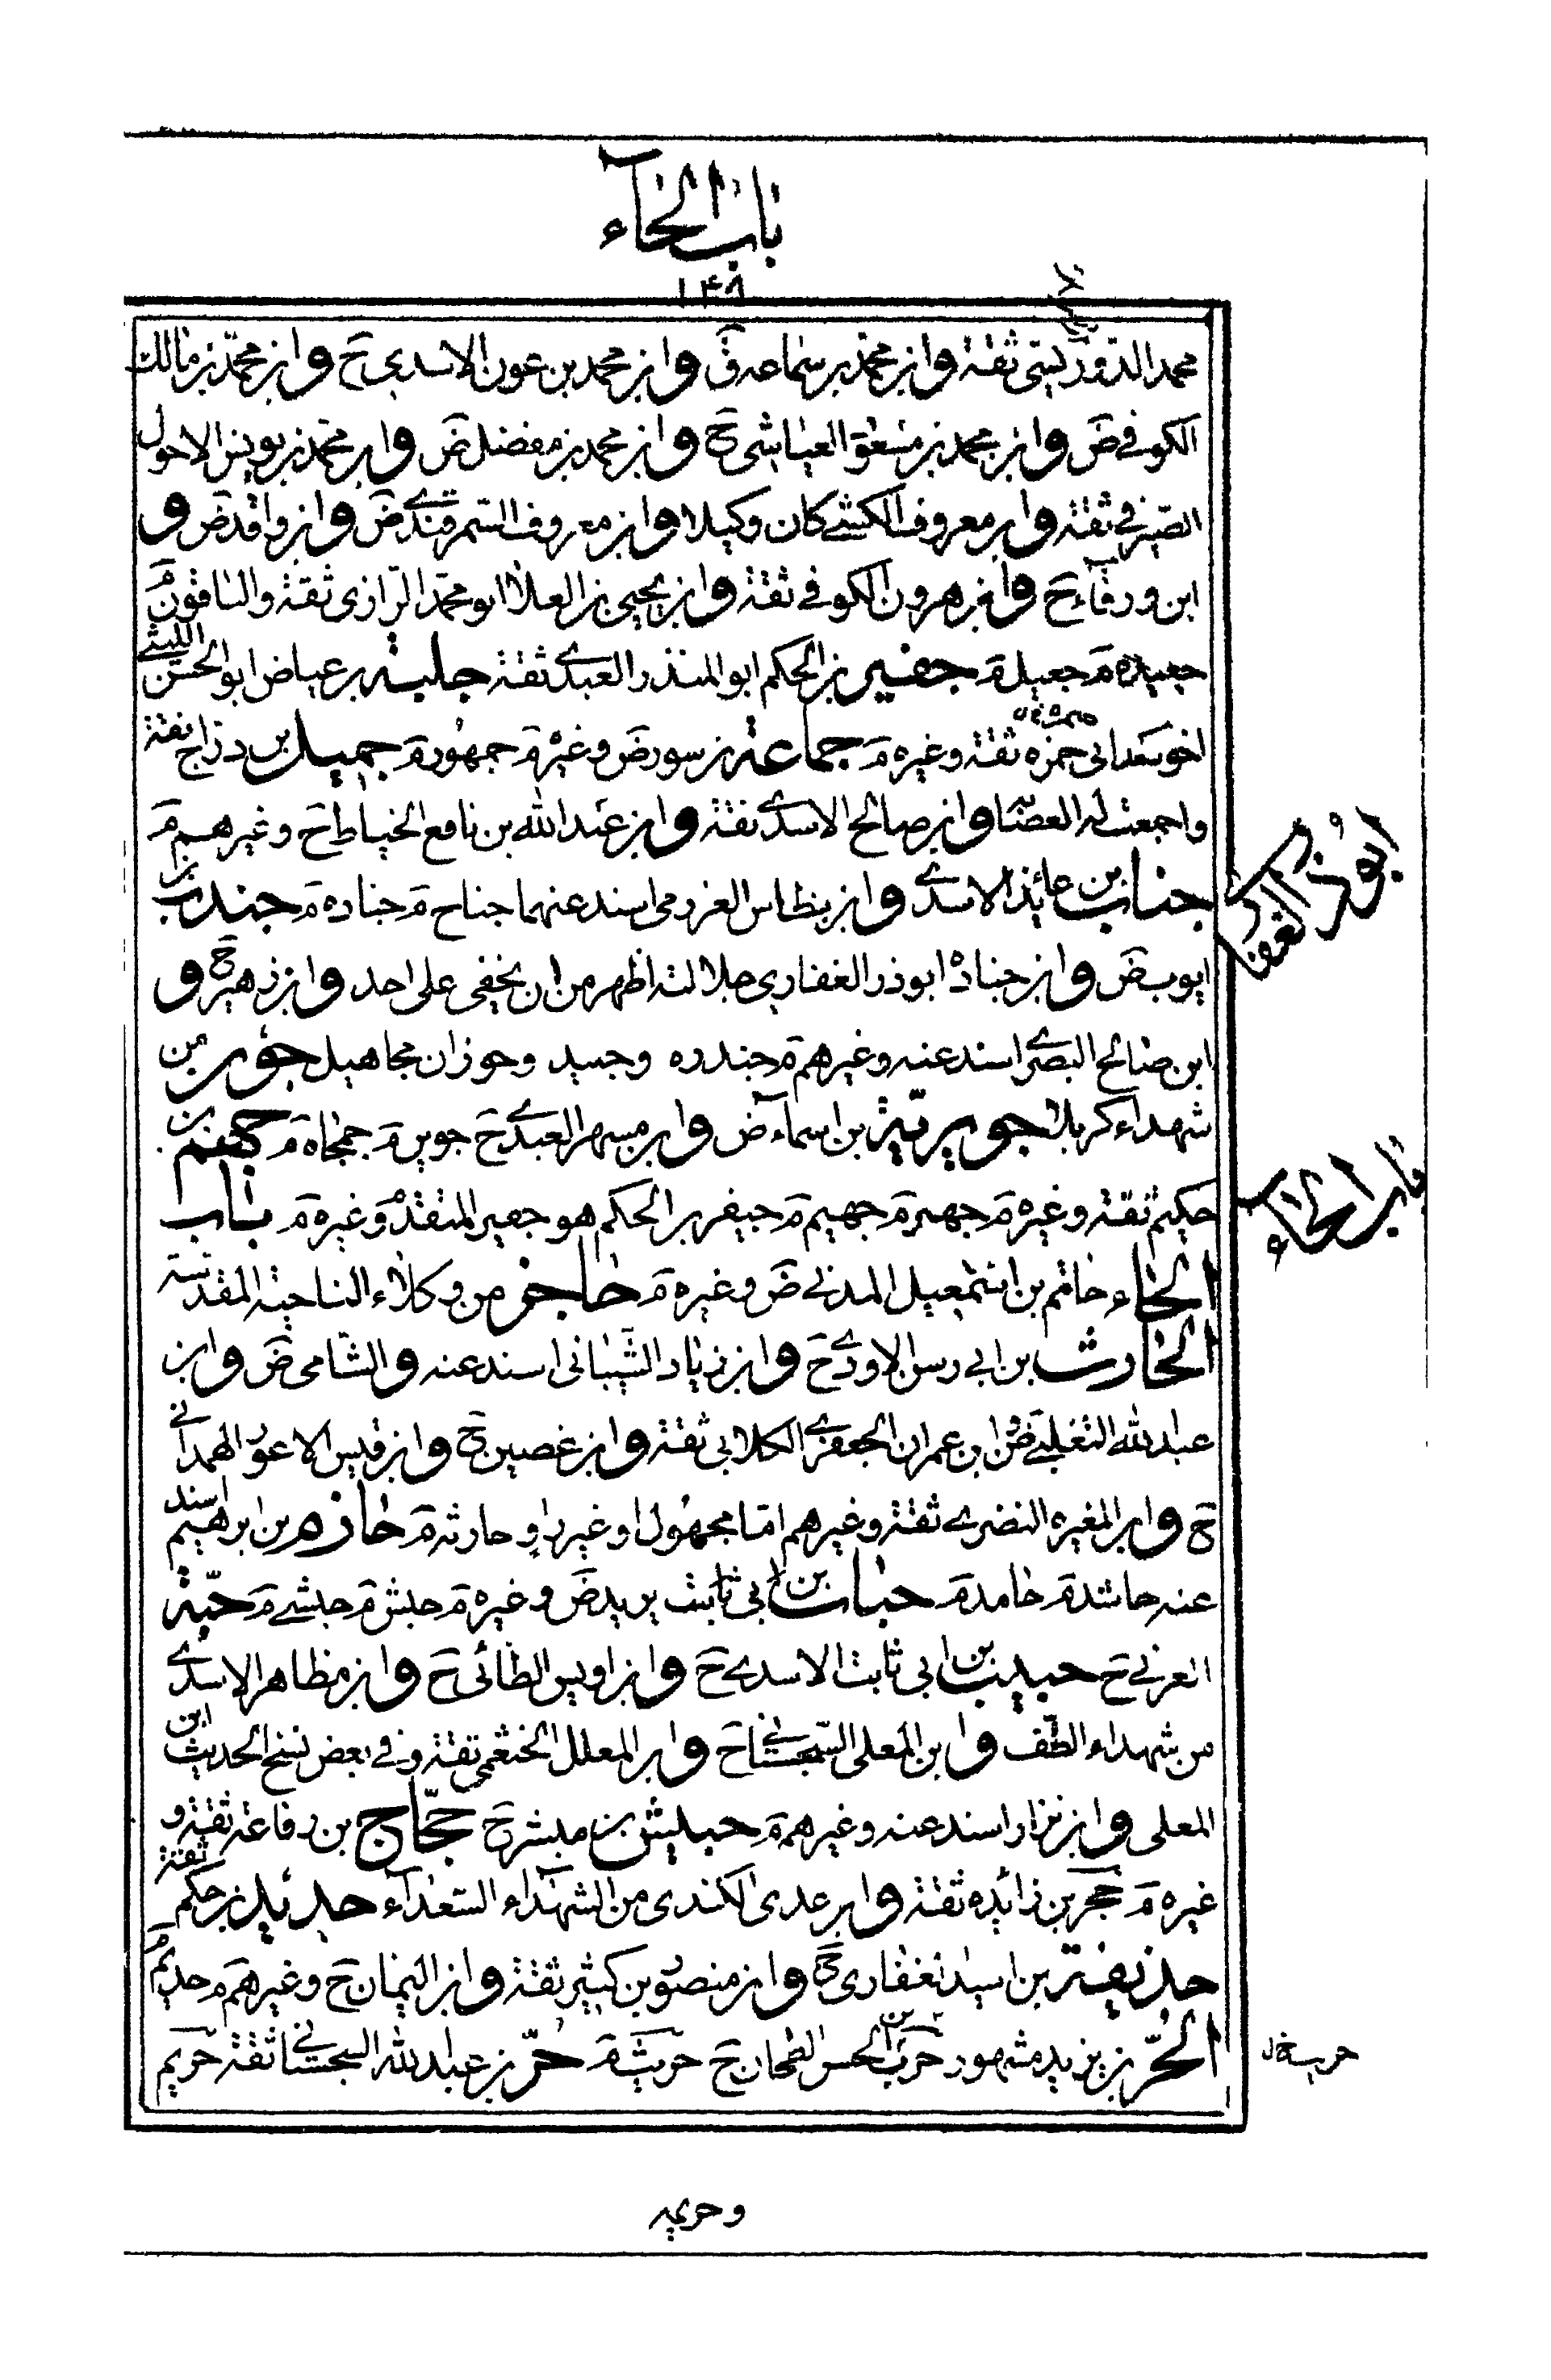 باب الحاء
١٤٨
محمد الدوريستي ثقة وابن محمد بن سماعه ق وابن محمد بن عون الاسدي ح وابن محمد بن مالك
الكوفي ض وابن محمد بن مسعود العياشي ح وابن محمد بن مفضل ض وابن محمد بن يونس الاحول
الصيرفي ثقة وابن معروف الكشي كان وكيلا وابن معروف السمرقندي ض وابن واقد ض و
ابن ورقاء ح وابن هرون الكوفي ثقة وابن يحيى بن العلا ابو محمد الرازي ثقة والباقون م
جعيده م جعيل م جفير بن الحكم ابو المنذر العبدي ثقة جلبة بن عياض ابو الحسن الليثي
اخو ابي حمزه ثقة وغيره م جماعة بن سور ض وغيره م جمهور م جميل بن دراج ثقة
واجمعت له العصابة وابن صالح الاسدي ثقة وابن عبد الله بن نافع الخياط ح وغيرهم م
جناب بن عائذ الاسدي وابن نطاس العزرمي اسند عنهما جناح م جناده م جندب بن
ايوب ض وابن جناده ابو ذر الغفاري جلالته اظهر من ان يخفى على احد وابن زهير ح و
ابن صالح البصري اسند عنه وغيرهم م جندره وجسيد وحوزان مجاهيل جون من
شهداء كربلا جويرية بن اسماء ض وابن مسهر العبدي ح جوين م جهم بن
حكيم ثقة وغيره م جهير م جهيم م جيفر بن الحكم هو جعير المتقدم وغيره م باب
الحاء حاتم بن اسمعيل المدني ض وغيره م حاجز من وكلاء الناحية المقدسة
الحارث بن ابي رسن الاودي ح وابن زياد الشيباني اسند عنه والشامي ض وابن
عبد الله التغلبي ض وابن عمران الجعفري الكلابي ثقة وابن غصين ح وابن قيس الاعور الهمداني
ح وابن المغيره النضري ثقة وغيرهم اما مجهول او غير راو حارثه م حازم بن ابرهيم اسند
عنه حاشد م حامد م حباب بن ابي ثابت يزيد ض وغيره م حبش م حبشي م حبة
العرني ح حبيب بن ابي ثابت الاسدي ح وابن اويس الطائي ح وابن مظاهر الاسدي
من شهداء الطف وابن المعلى السجستاني ح وابن المعلل الخثعمي ثقة وفي بعض نسخ الحديث ابن
المعلى وابن نزار اسند عنه وغيرهم م حبيش بن مبشر ح حجاج بن رفاعة ثقة و
غيره م حجر بن زائده ثقة وابن عدي الكندي من الشهداء السعداء حديد بن حكم ثقة
حذيفة بن اسيد الغفاري ح وابن منصور بن كثير ثقة وابن اليمان ح وغيرهم م حذيم م
الحر بن يزيد مشهور حرب بن الحسن الطحان ح حريث م حريز بن عبد الله السجستاني ثقة حريم
ابو ذر الغفاري
باب الحاء
وحريم